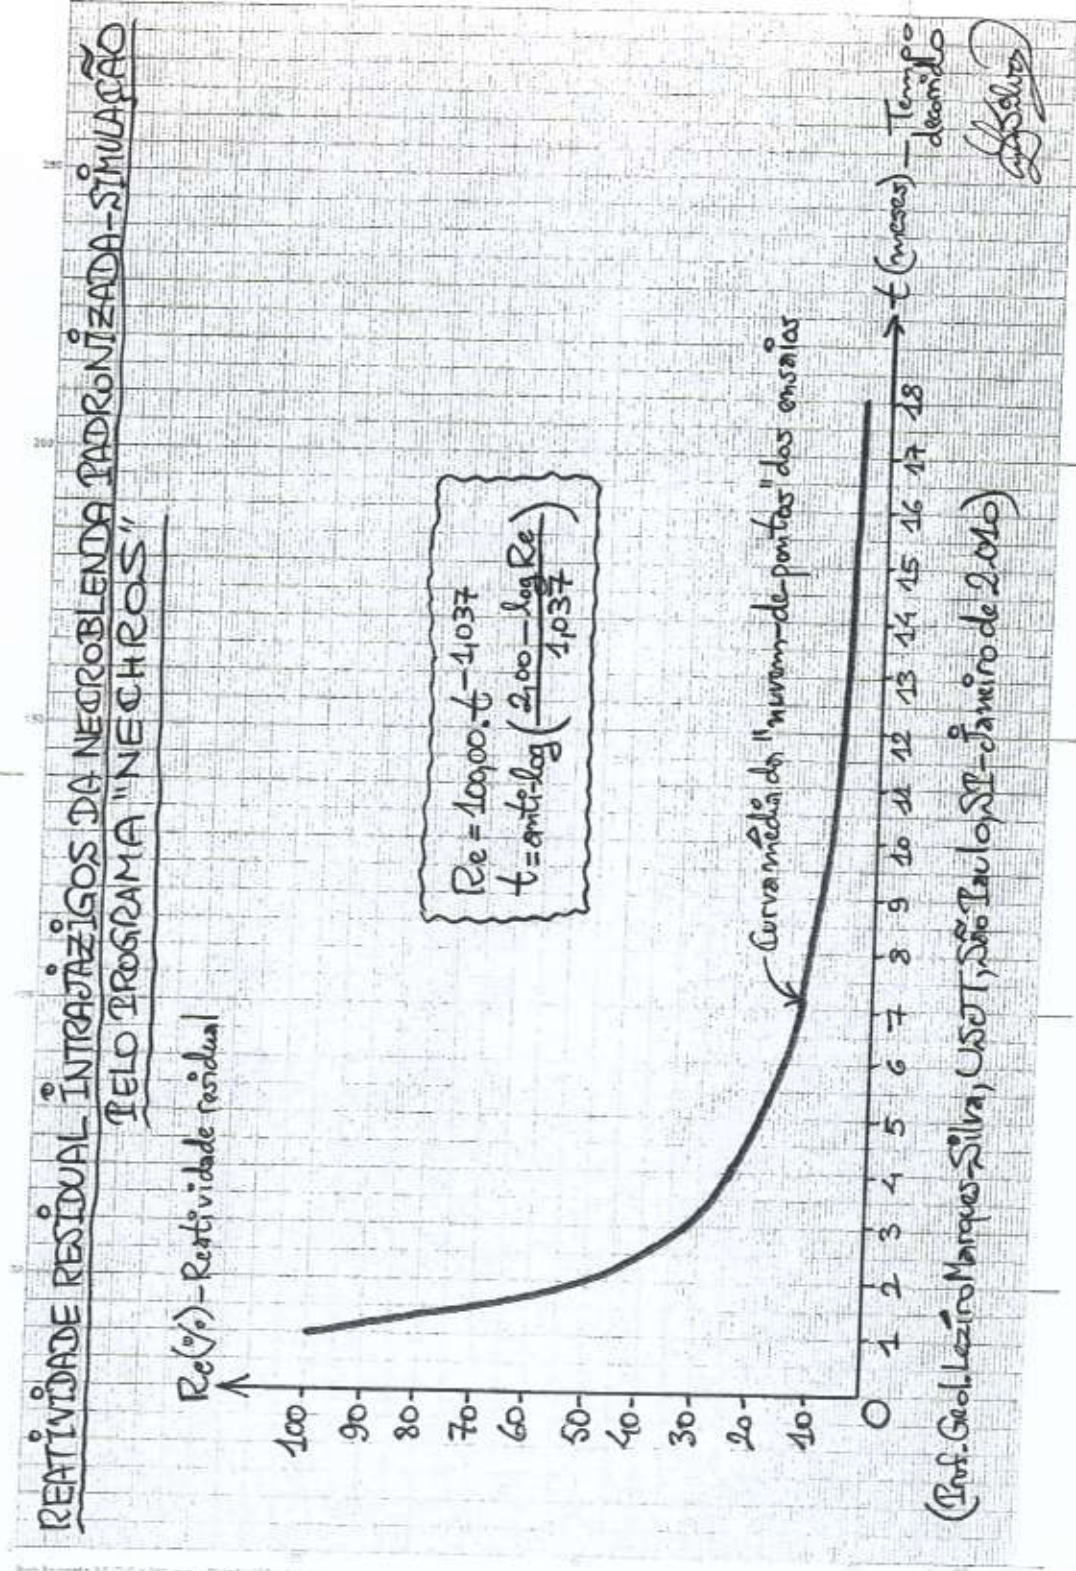 REATIVIDADE RESIDUAL INTRAJAZIGOS DA NECROBLENDA PADRONIZADA-SIMULAÇÃO
PELO PROGRAMA "NECHROS"
Re(%)-Reatividade residual
100
90
80
70
60
50
40
30
20
10
0
Re = 100,00.t^-1,037
t = anti-log (2,00 - log Re / 1,037)
Curva média da "nuvem-de-pontos" dos ensaios
1 2 3 4 5 6 7 8 9 10 11 12 13 14 15 16 17 18
t (meses) - Tempo
decorrido
(Prof. Geol. Lezíro Marques-Silva, USJT, São Paulo, SP-Janeiro de 2.010)
50
150
200
250